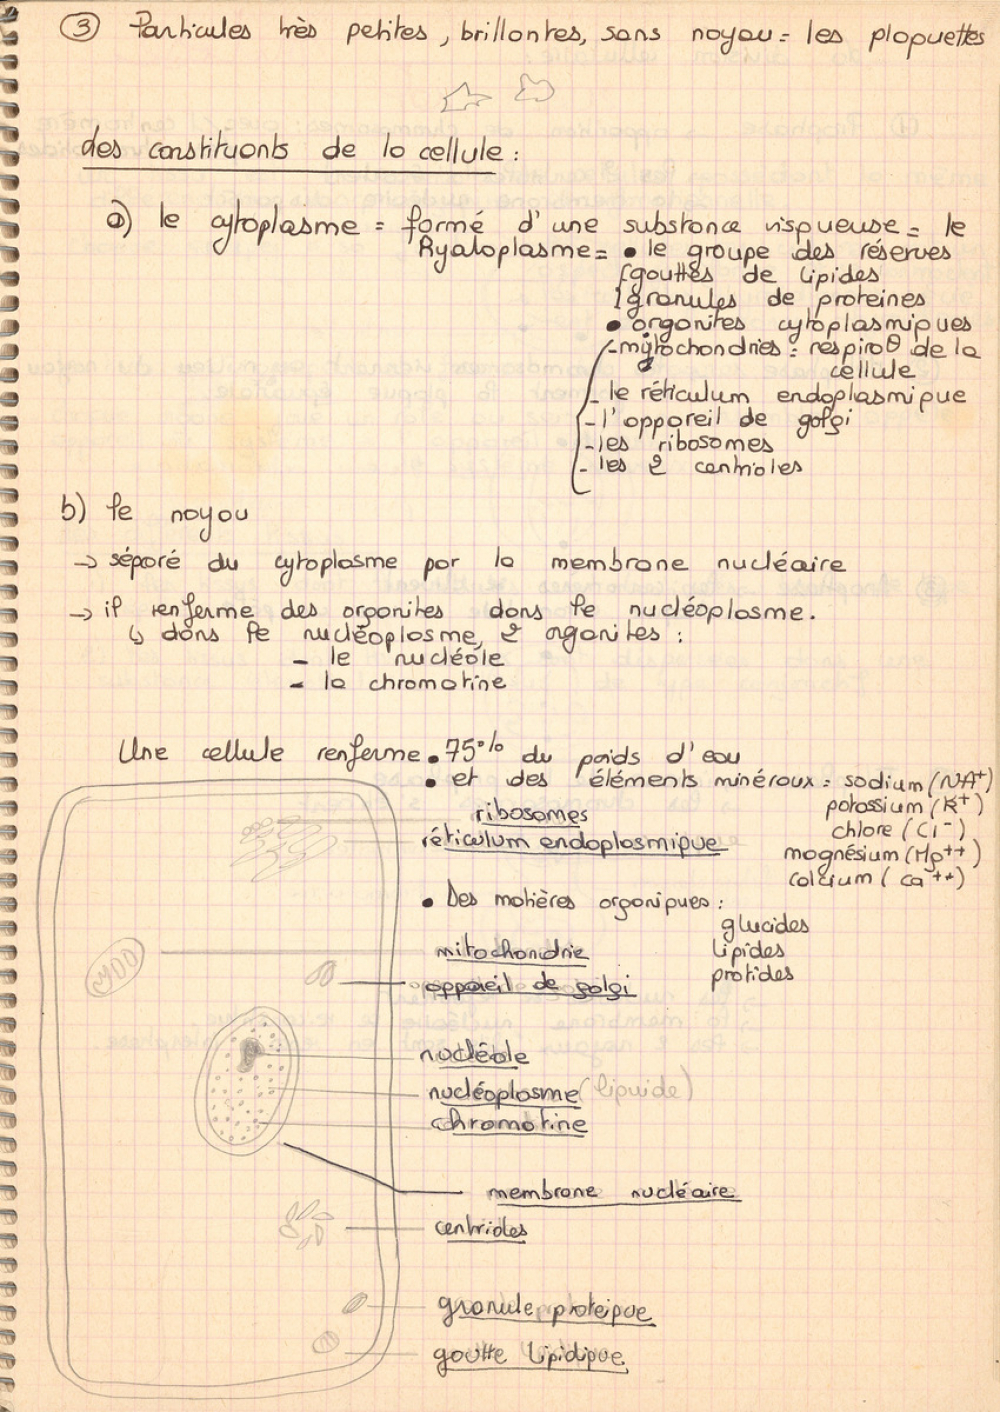 ③ Particules très petites, brillantes, sans noyau = les plaquettes
des constituants de la cellule :
a) le cytoplasme = formé d'une substance visqueuse = le
Hyaloplasme = • le groupe des réserves
{gouttes de lipides
granules de proteines
• organites cytoplasmiques
- mytochondries : respirat° de la
cellule
- le réticulum endoplasmique
- l'appareil de golgi
- les ribosomes
- les 2 centrioles
b) le noyau
→ séparé du cytoplasme par la membrane nucléaire
→ il renferme des organites dans le nucléoplasme.
↳ dans le nucléoplasme, 2 organites :
- le nucléole
- la chromatine
Une cellule renferme • 75% du poids d'eau
• et des éléments minéraux : sodium (NA+)
potassium (K+)
chlore (Cl-)
magnésium (Mg++)
calcium (ca++)
ribosomes
réticulum endoplasmique
• Des matières organiques :
glucides
lipides
protides
mitochondrie
appareil de golgi
nucléole
nucléoplasme (liquide)
chromatine
membrane nucléaire
centrioles
granule proteique
goutte lipidique